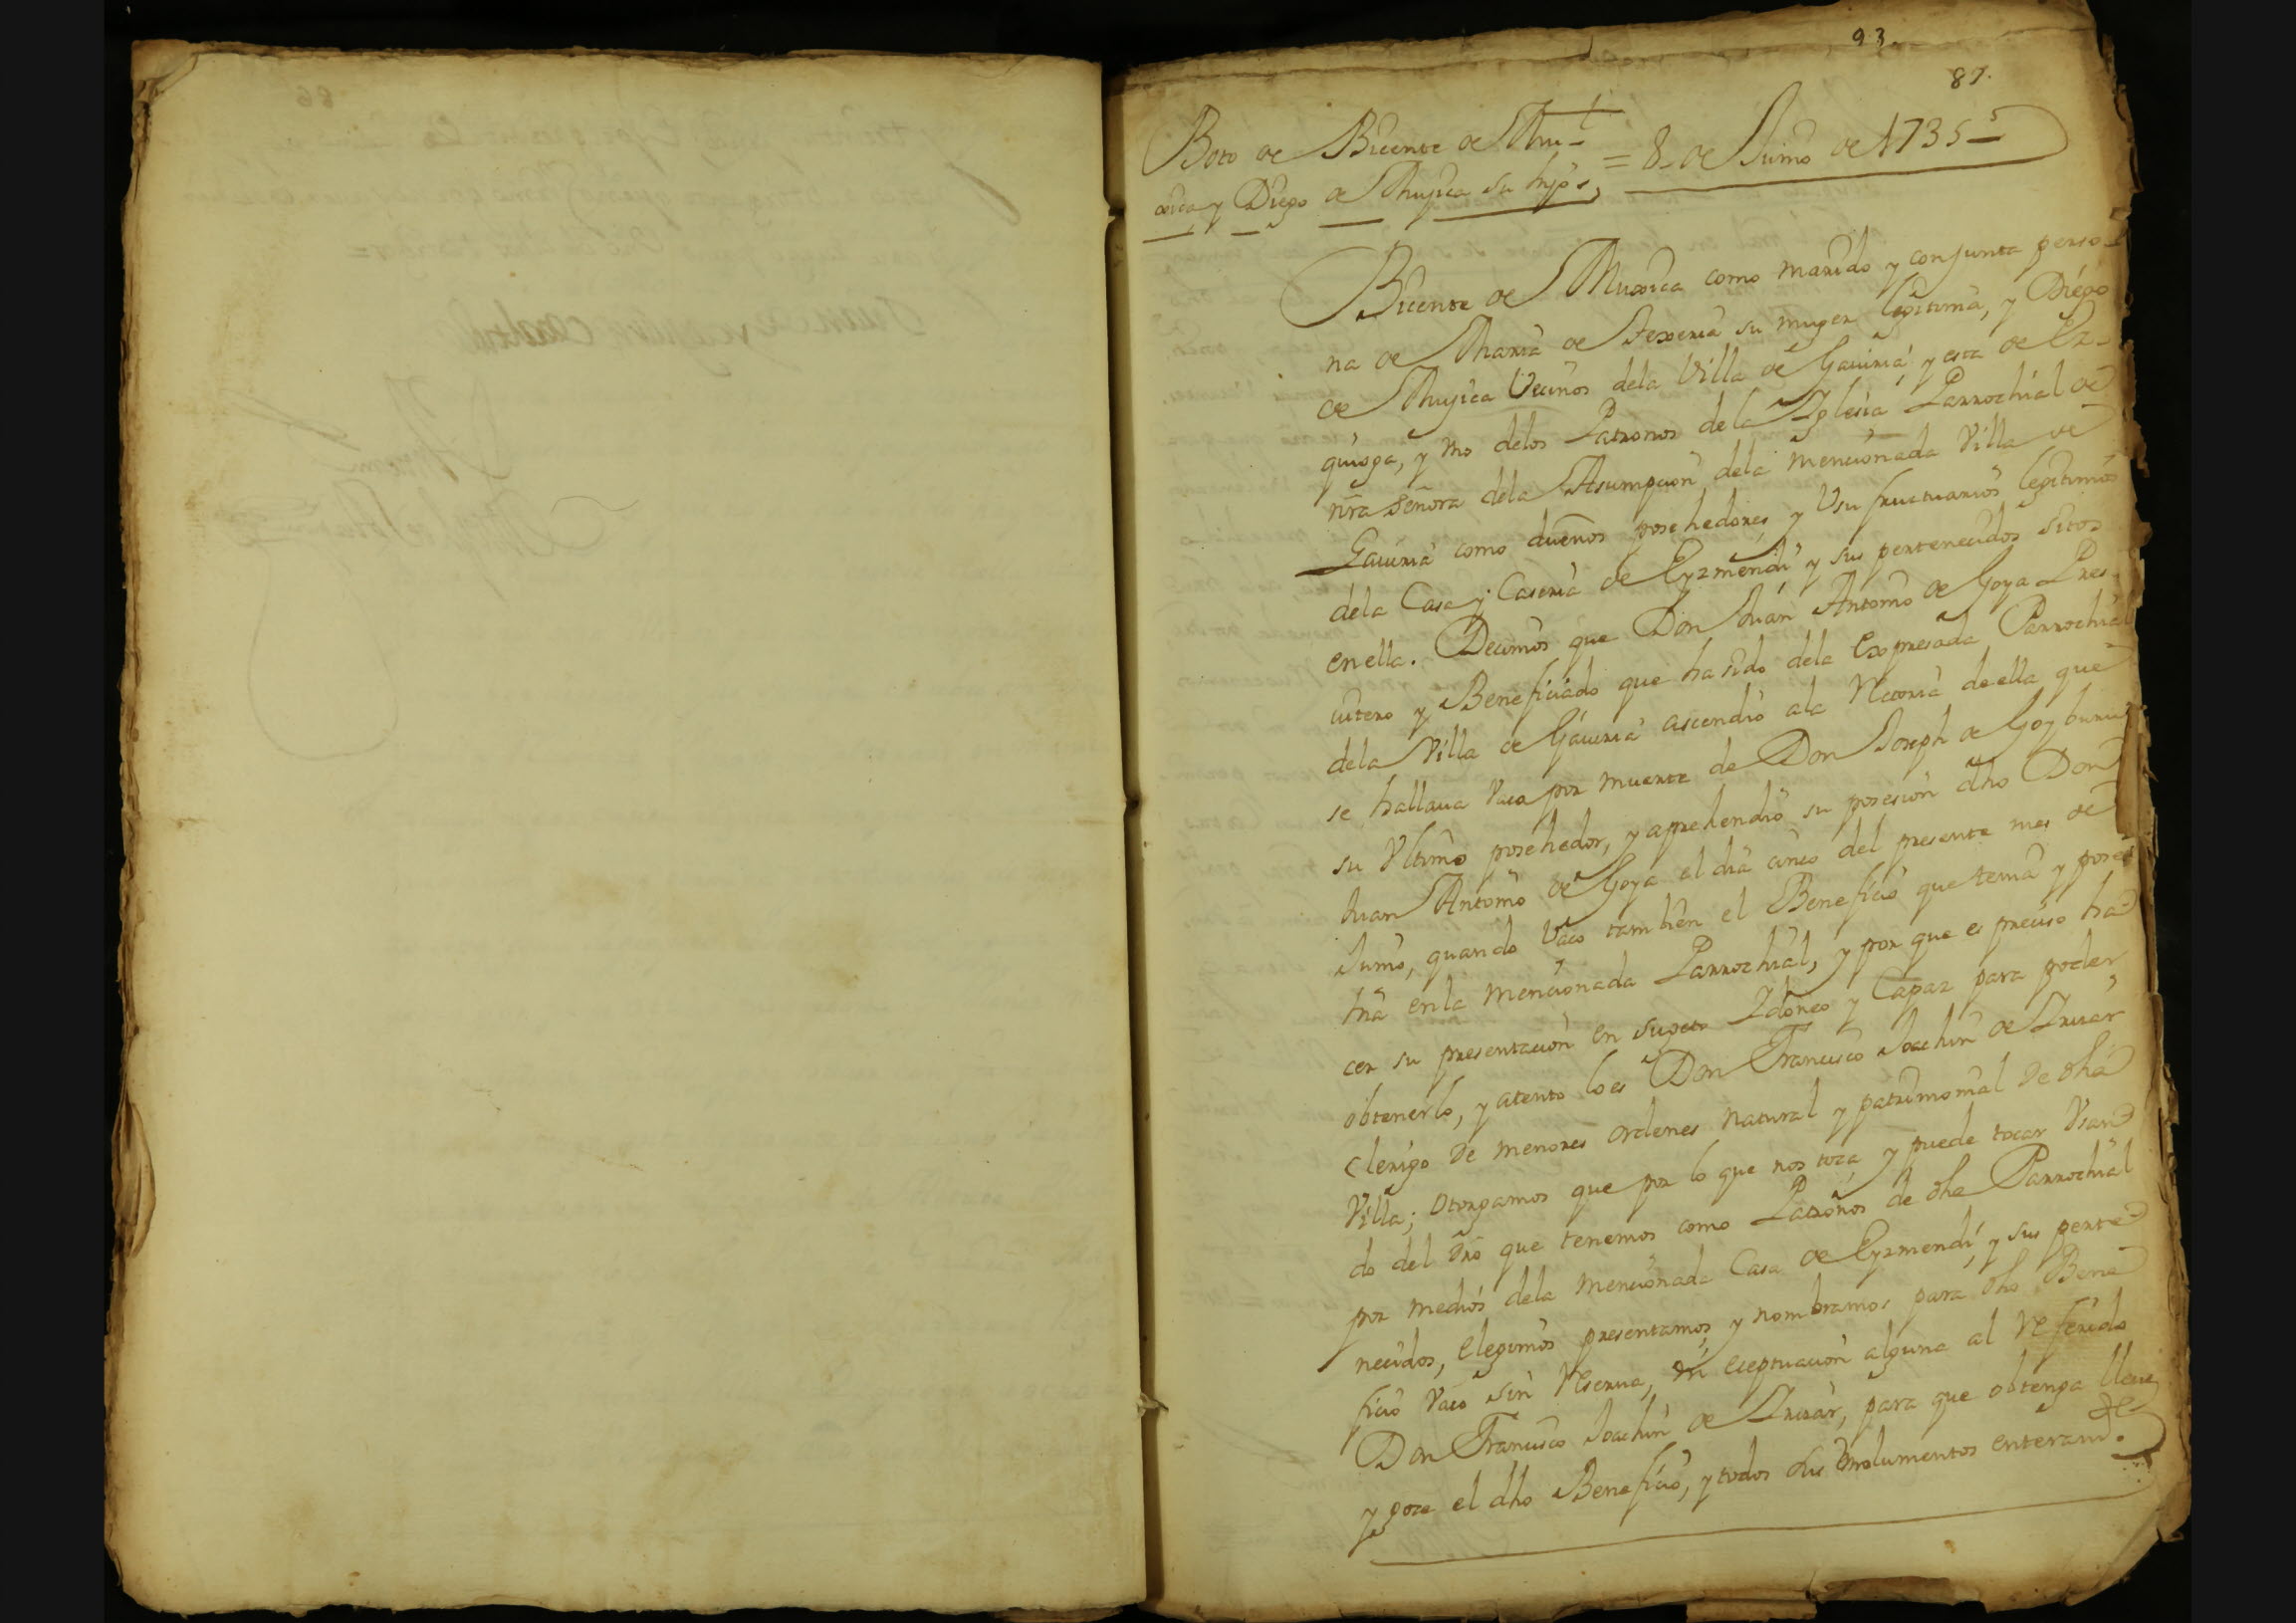 93.
87.
Boto de Bicente de Mu-
xica y Diego de Mugica su hijo, = 8 de Junio de 1735
Bicente de Muxica como marido y conjunta perso-
na de Maria de Texeria su muger legitima, y Diego
de Mugica Vecinos dela Villa de Gaviria, y esta de Ez-
quioga, y uno delos Patronos dela Iglesia Parrochial de
nra Señora dela Asumpcion dela mencionada Villa de
Gaviria como dueños posehedores y Usufructuarios legitimos
dela Casa y Caseria de Eyzmendi y sus pertenecidos sitos
en ella. Decimos que Don Juan Antonio de Goya Pres-
vitero y Beneficiado que ha sido dela expresada Parrochial
dela Villa de Gaviria ascendio ala Rectoria de ella que
se hallava vaca por muerte de Don Joseph de Goyburu
su Ultimo posehedor, y aprehendio su posesion dho Don
Juan Antonio de Goya el dia cinco del presente mes de
Junio, quando vaco tambien el Beneficio que tenia y pose-
hia enla mencionada Parrochial, y por que es preciso ha-
cer su presentacion en sugeto Idoneo y Capaz para poder
obtenerlo, y atento lo es Don Francisco Joachin de Irizar
Clerigo de menores ordenes natural y patrimonial de dha
Villa; otorgamos que por lo que nos toca y puede tocar Usan-
do del dro que tenemos como Patronos de dha Parrochial
por medios dela mencionada Casa de Eyzmendi, y sus perte-
necidos, elegimos presentamos, y nombramos para dho Bene-
ficio Vaco sin Reserva, ni eseptuacion alguna al Referido
Don Francisco Joachin de Irizar, para que obtenga lleve
y goze el dho Beneficio, y todos sus emolumentos enteramte